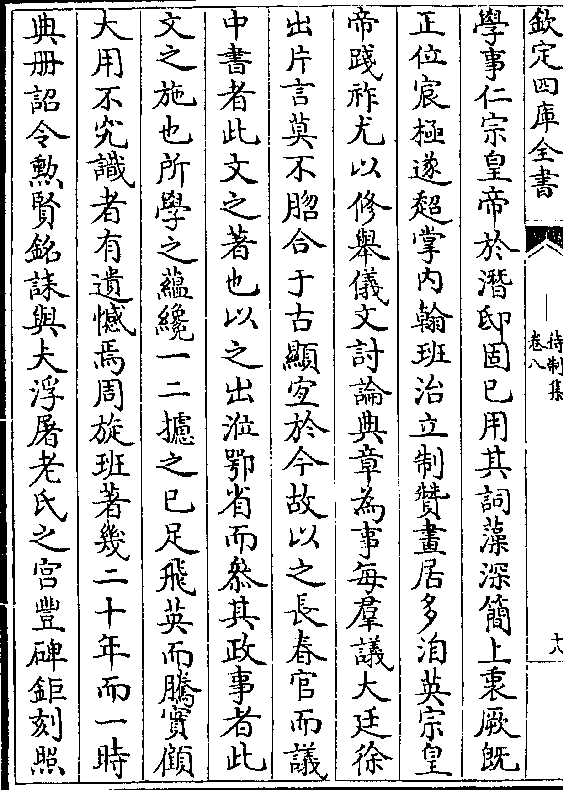 欽定四庫全書
待制集
卷八
十八
學事仁宗皇帝於潛邸固已用其詞藻深簡上衷厥既
正位宸極遂超掌内翰班治立制贊畫居多洎英宗皇
帝踐祚尤以修舉儀文討論典章為事每羣議大廷徐
出片言莫不脗合于古顯宜於今故以之長春官而議
中書者此文之著也以之出涖鄂省而叅其政事者此
文之施也所學之蘊纔一二攄之已足飛英而騰實顧
大用不究識者有遺憾焉周旋班著幾二十年而一時
典册詔令勲賢銘誄與夫浮屠老氏之宫豐碑鉅刻照